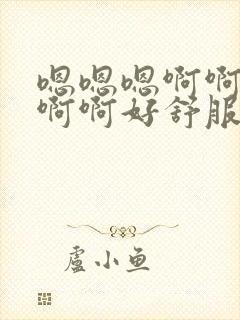 嗯嗯嗯啊啊
啊啊好舒服
盧小鱼